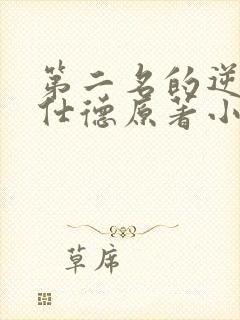 第二名的逆
仕德原著小
草席